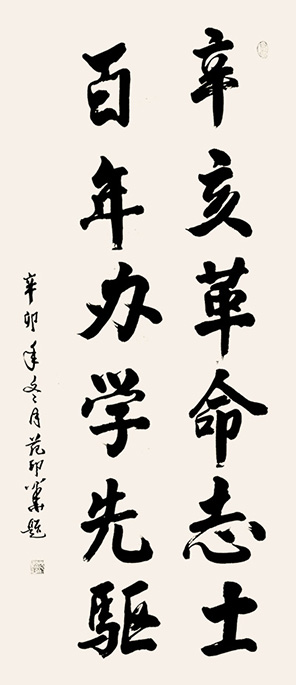 辛亥革命志士
百年办学先驱
辛卯年冬月范印华题